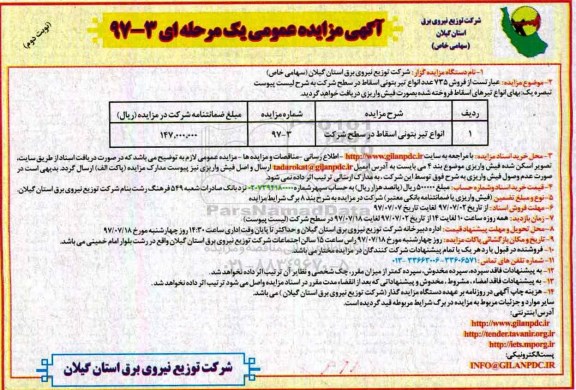 شرکت توزیع نیروی برق
استان گیلان
(سهامی خاص)
آگهی مزایده عمومی یک مرحله ای ۳-۹۷
(نوبت دوم)
۱- نام دستگاه مزایده گزار: شرکت توزیع نیروی برق استان گیلان (سهامی خاص)
۲- موضوع مزایده: عبارتست از فروش ۷۳۵ عدد انواع تیر بتونی اسقاط در سطح شرکت به شرح لیست پیوست
تبصره یک: بهای انواع تیرهای اسقاط فروخته شده بصورت فیش واریزی دریافت خواهد گردید.
ردیف شرح مزایده شماره مزایده مبلغ ضمانتنامه شرکت در مزایده (ریال)
۱ انواع تیر بتونی اسقاط در سطح شرکت ۹۷-۳ ۱۴۷,۰۰۰,۰۰۰
۳- محل خرید اسناد مزایده: با مراجعه به سایت http://www.gilanpdc.ir -اطلاع رسانی -مناقصات و مزایده ها - مزایده عمومی لازم به توضیح می باشد که در صورت دریافت اسناد از طریق سایت،
تصویر اسکن شده فیش واریزی موضوع بند ۴ می بایست به آدرس ایمیل tadarokat@gilanpdc.ir ارسال و اصل فیش واریزی نیز پیوست مدارک مزایده (پاکت الف) ارسال گردد. بدیهی است در
صورت عدم وصول فیش واریزی به شرح فوق توسط این شرکت، به مدارک ارسالی ترتیب اثر داده نمی شود.
۴- قیمت خرید اسناد و شماره حساب: مبلغ ۵۰۰۰۰۰ ریال (پانصد هزار ریال) به حساب سپهر شماره نزد بانک صادرات شعبه ۵۴۹ فرهنگ رشت بنام شرکت توزیع نیروی برق استان گیلان.
۵- نوع و مبلغ تضمین: (فیش واریزی یا ضمانتنامه بانکی معتبر) شرکت در مزایده به شرح بند ۸ برگ شرایط مزایده
۶- مهلت فروش اسناد: از تاریخ ۹۷/۰۷/۰۲ لغایت تاریخ ۹۷/۰۷/۰۷
۷- زمان بازدید: همه روزه ساعت ۱۰ لغایت ۱۴ از تاریخ ۹۷/۰۷/۰۲ لغایت ۹۷/۰۷/۱۸ در سطح شرکت (لیست پیوست)
۸- محل تحویل و مهلت پیشنهاد قیمت: اداره دبیرخانه شرکت توزیع نیروی برق استان گیلان و حداکثر تا پایان وقت اداری ساعت ۱۴:۳۰ روز چهارشنبه مورخ ۹۷/۰۷/۱۸
۹- تاریخ و مکان بازگشائی پاکات مزایده: روز چهارشنبه مورخ ۹۷/۰۷/۱۸ راس ساعت ۱۵ سالن اجتماعات شرکت توزیع نیروی برق استان گیلان واقع در رشت بلوار امام خمینی می باشد.
۱۰- فروشنده در قبول یا رد هر یک یا تمام پیشنهادات شرکت کنندگان در مزایده مختار می باشد.
۱۱- شماره تلفن های تماس: ۳۳۶۰۶۵۷۱-۳۳۶۶۳۰۰۶-۰۱۳
۱۲- به پیشنهادات فاقد سپرده، سپرده مخدوش، سپرده کمتر از میزان مقرر، چک شخصی و نظایر آن ترتیب اثر داده نخواهد شد.
۱۳- به پیشنهادات فاقد امضاء، مشروط، مخدوش و پیشنهاداتی که بعد از انقضاء مدت مقرر در اسناد مزایده واصل می شود ترتیب اثر داده نخواهد شد.
۱۴- هزینه چاپ آگهی در روزنامه بر عهده دستگاه مزایده گذار (شرکت توزیع نیروی برق استان گیلان) می باشد.
سایر موارد و جزئیات مربوط به مزایده در برگ شرایط مربوطه قید گردیده است.
آدرس اینترنتی:
http://www.gilanpdc.ir
http://tender.tavanir.org.ir
http://iets.mporg.ir
پست الکترونیکی:
INFO@GILANPDC.IR
شرکت توزیع نیروی برق استان گیلان